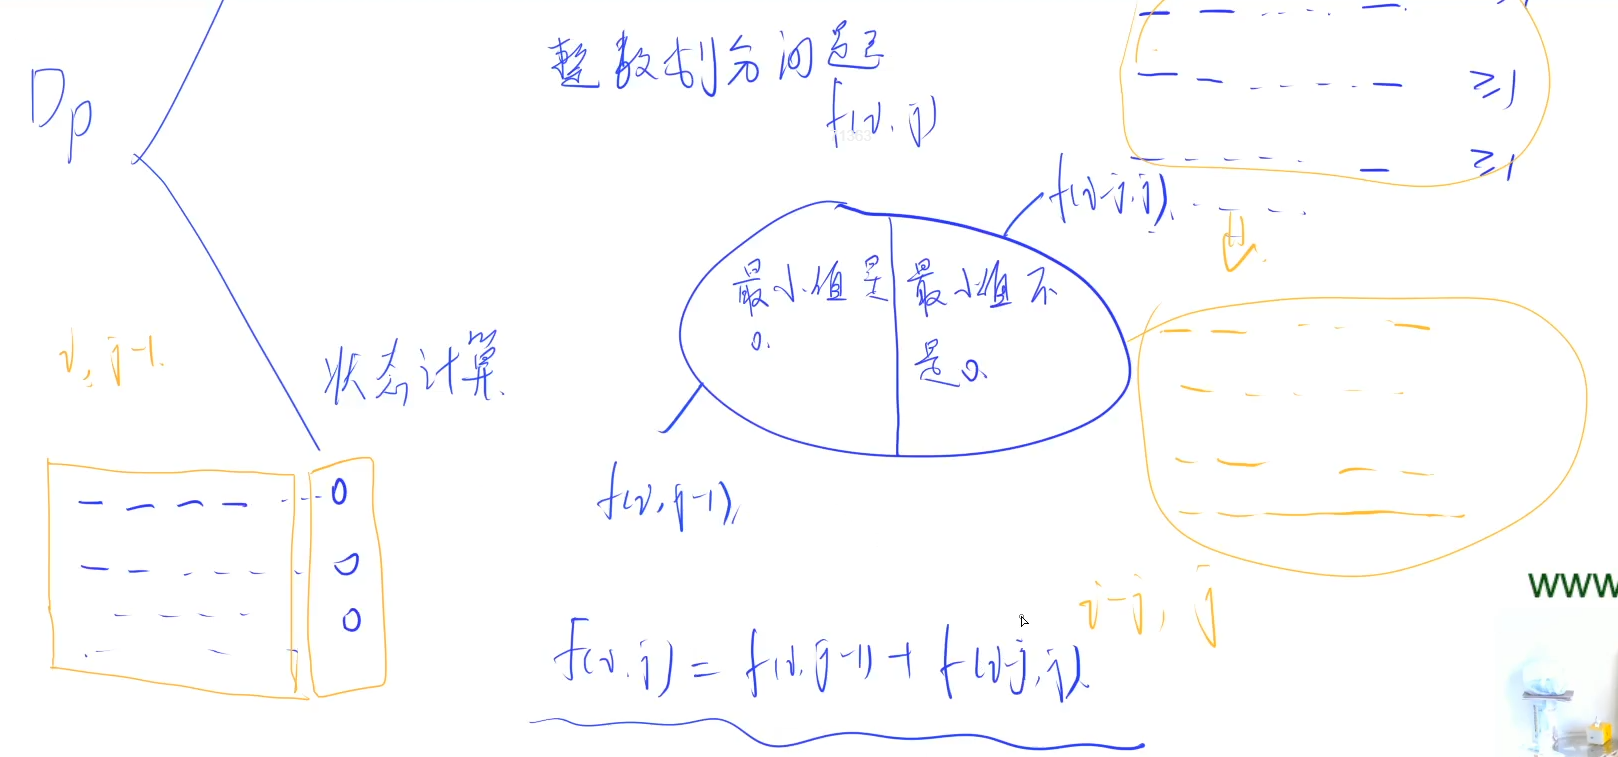 整数划分问题
Dp
f(i, j)
≥1
≥1
f(i-j, j)
最小值是
0.
最小值不
是0.
i, j-1.
状态计算
f(i, j-1),
0
0
0
WWW
i-j, j
f(i, j) = f(i, j-1) + f(i-j, j).